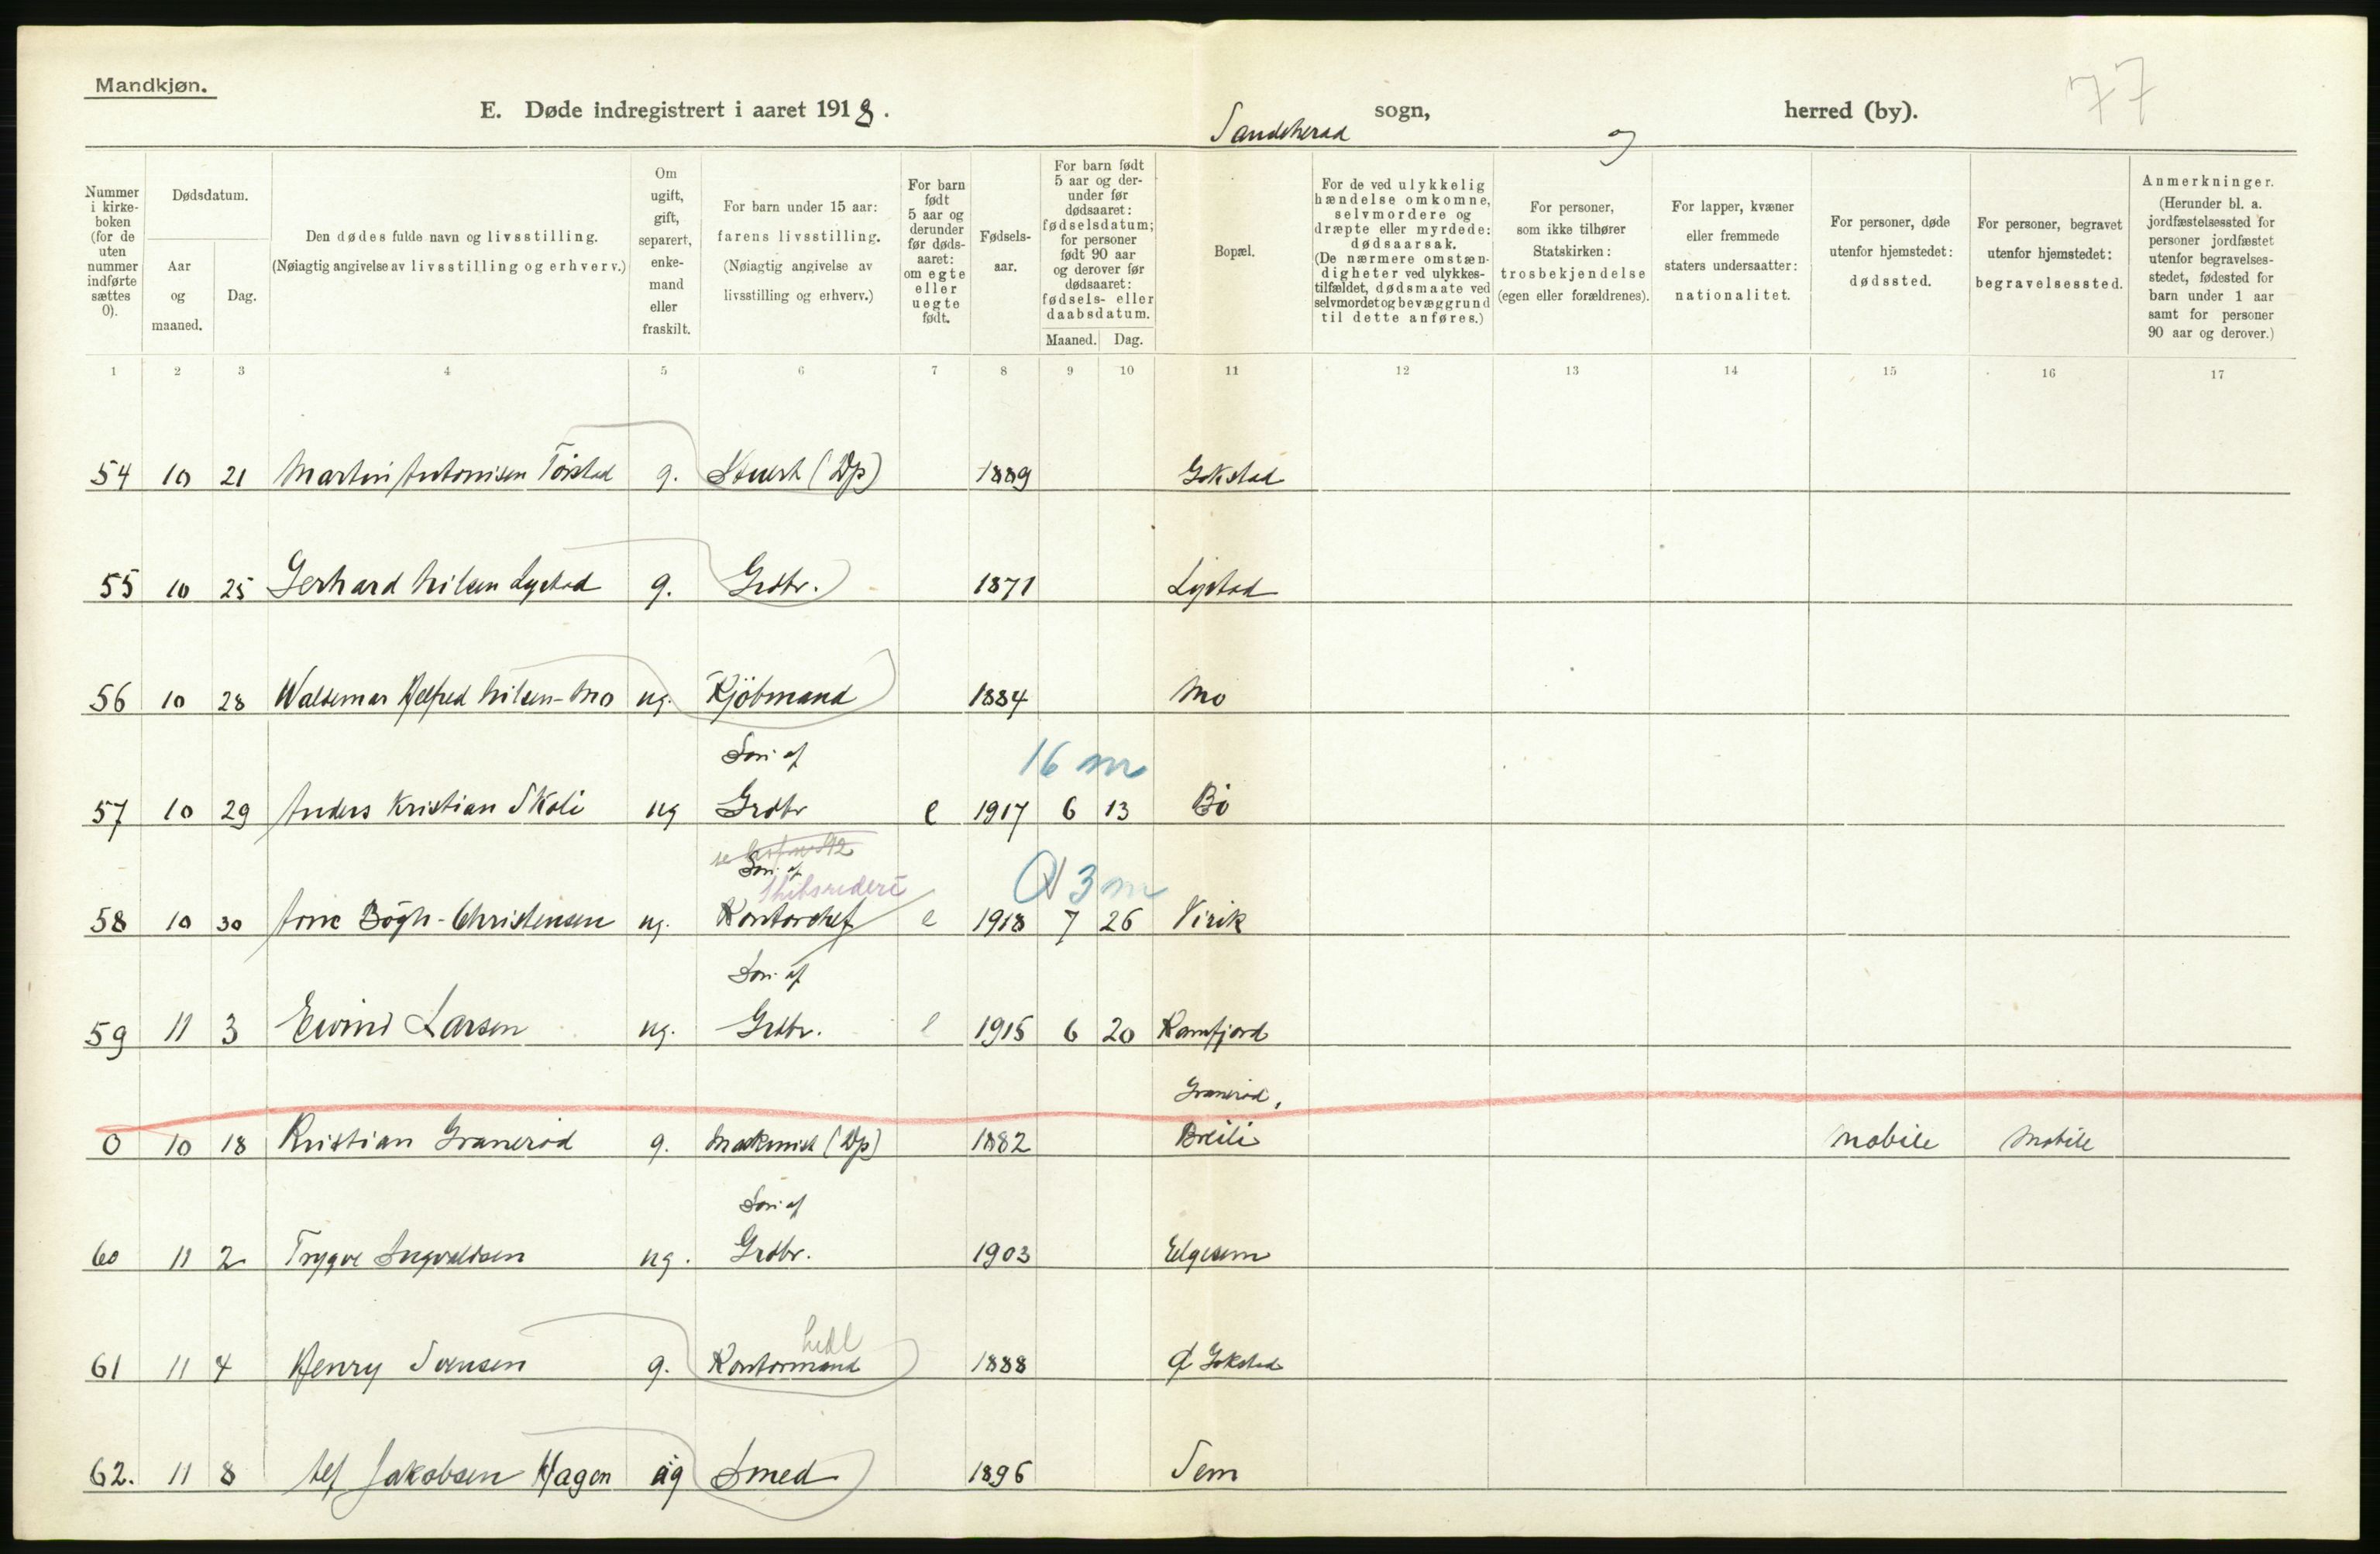 Mandkjøn.
77
E. Døde indregistrert i aaret 1918.
Sandeherad sogn, og herred (by).
Nummer i kirke-boken (for de uten nummer indførte sættes 0).
Dødsdatum.
Aar og maaned.
Dag.
Den dødes fulde navn og livsstilling.
(Nøiagtig angivelse av livsstilling og erhverv.)
Om ugift, gift, separert, enke-mand eller fraskilt.
For barn under 15 aar: farens livsstilling.
(Nøiagtig angivelse av livsstilling og erhverv.)
For barn født 5 aar og derunder før døds-aaret: om egte eller uegte født.
Fødsels-aar.
For barn født 5 aar og der-under før dødsaaret: fødselsdatum; for personer født 90 aar og derover før dødsaaret: fødsels- eller daabsdatum.
Maaned. Dag.
Bopæl.
For de ved ulykkelig hændelse omkomne, selvmordere og dræpte eller myrdede: dødsaarsak.
(De nærmere omstæn-digheter ved ulykkes-tilfældet, dødsmaate ved selvmordet og bevæggrund til dette anføres.)
For personer, som ikke tilhører Statskirken: trosbekjendelse (egen eller forældrenes).
For lapper, kvæner eller fremmede staters undersaatter: nationalitet.
For personer, døde utenfor hjemstedet: dødssted.
For personer, begravet utenfor hjemstedet: begravelsessted.
Anmerkninger.
(Herunder bl. a. jordfæstelsessted for personer jordfæstet utenfor begravelses-stedet, fødested for barn under 1 aar samt for personer 90 aar og derover.)
1 2 3 4 5 6 7 8 9 10 11 12 13 14 15 16 17
54 10 21 Martin Antonisen Töistad g. Stuert (Dp) 1889 Gokstad
55 10 25 Gerhard Nilsen Lystad g. Grdbr. 1871 Lystad
56 10 28 Waldemar Alfred Nilsen-Mo ug. Kjöbmand 1884 Mo
Sön af
16 m
57 10 29 Anders Kristian Skoli ug Grdbr e 1917 6 13 Bö
Sön af
Skibsrederi
3 m
58 10 30 Arne Bögh-Christensen ug. Kontorchef e 1918 7 26 Virik
Sön af
59 11 3 Eivind Larsen ug. Grdbr. e 1915 6 20 Kamfjord
Graneröd,
0 10 18 Kristian Graneröd g. Maskinist (Dp) 1882 Breili Mobile Mobile
Sön af
60 11 2 Trygve Ingvaldsen ug. Grdbr. 1903 Elgesem
61 11 4 Henry Svensen g. Kontormand 1888 Ø Gokstad
62. 11 8 Alf Jakobsen Hagen ug Smed 1896 Sem